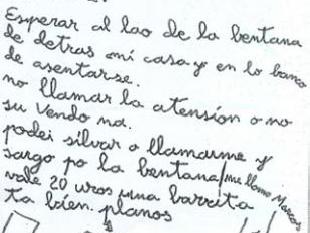 Esperar al lao de la bentana
de detras mi casa yo en lo banco
de asentarse.
no llamar la atensión o no
su vendo na.
podei silvar o llamarme y
sargo po la bentana/me llamo Marcos
vale 20 uros una barrita
ta bien. planos